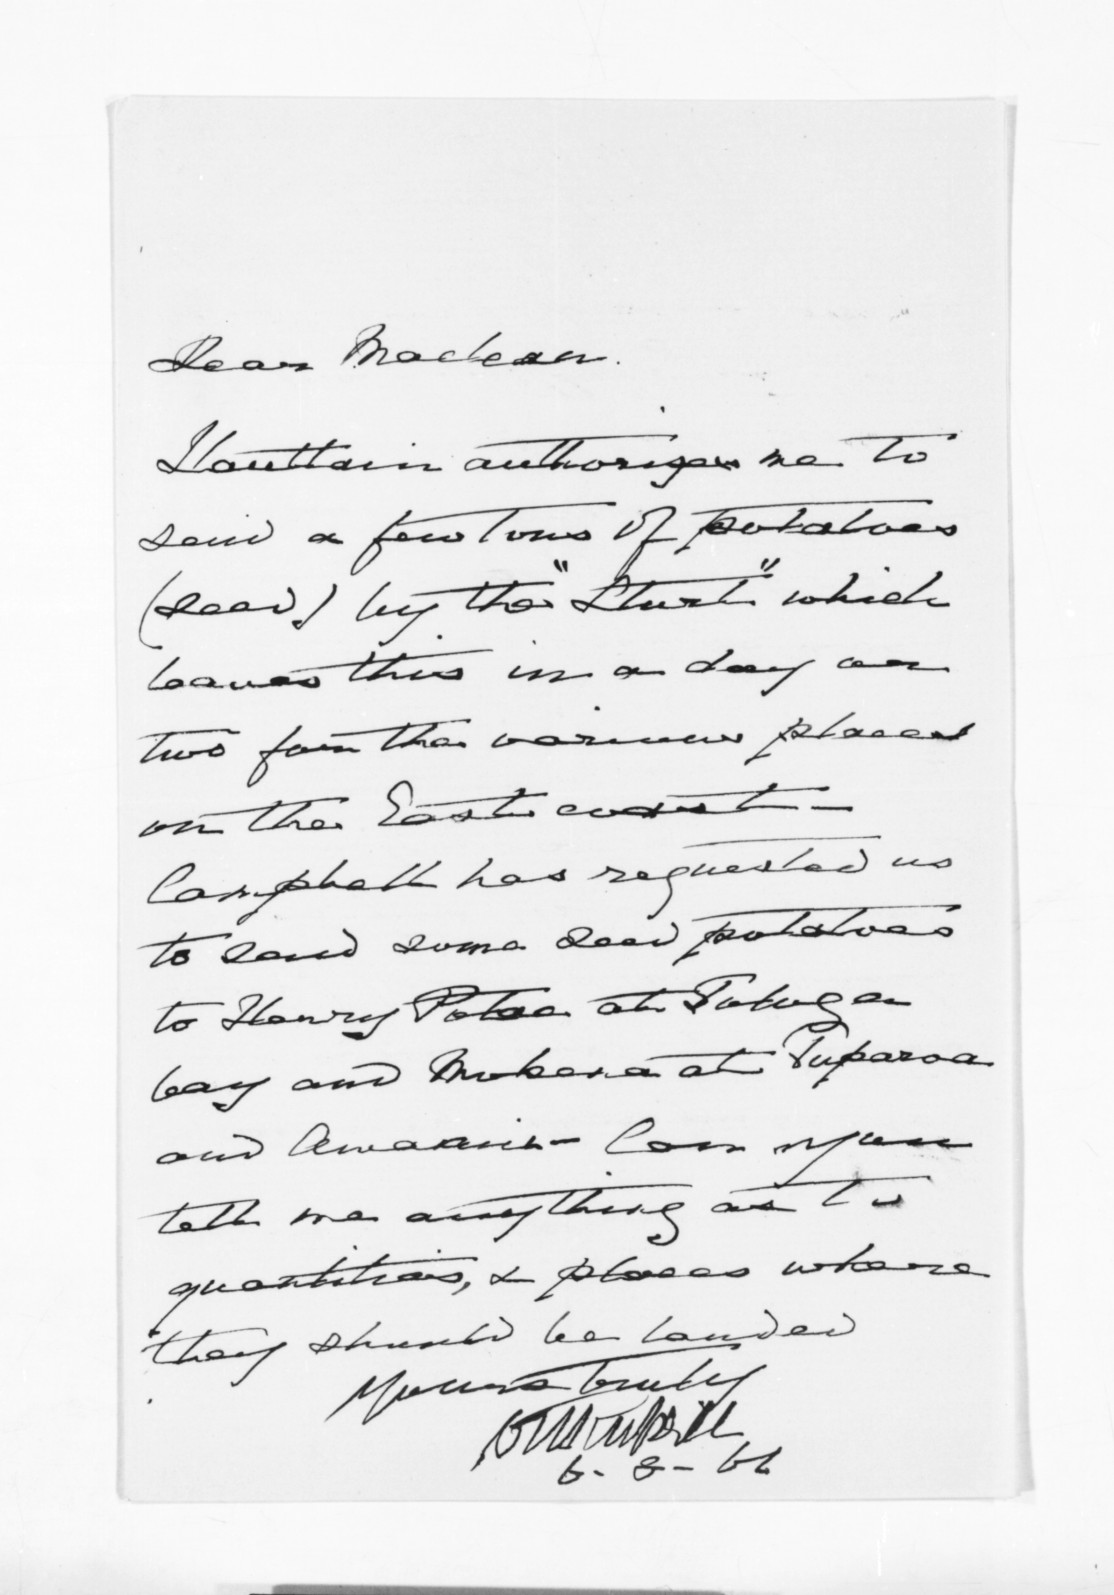 Dear Maclean.
Haultain authorizes me to
send a few tons of potatoes
(seed) by the "Sturt" which
leaves this in a day or
two for the various places
on the East coast —
Campbell has requested us
to send some seed potatoes
to Henry Potae at Tokoga
bay and Mokena at Tuparoa
and Awanui — Can you
tell me anything as to
quantities, & places where
they should be landed
Yours truly
6-8-66